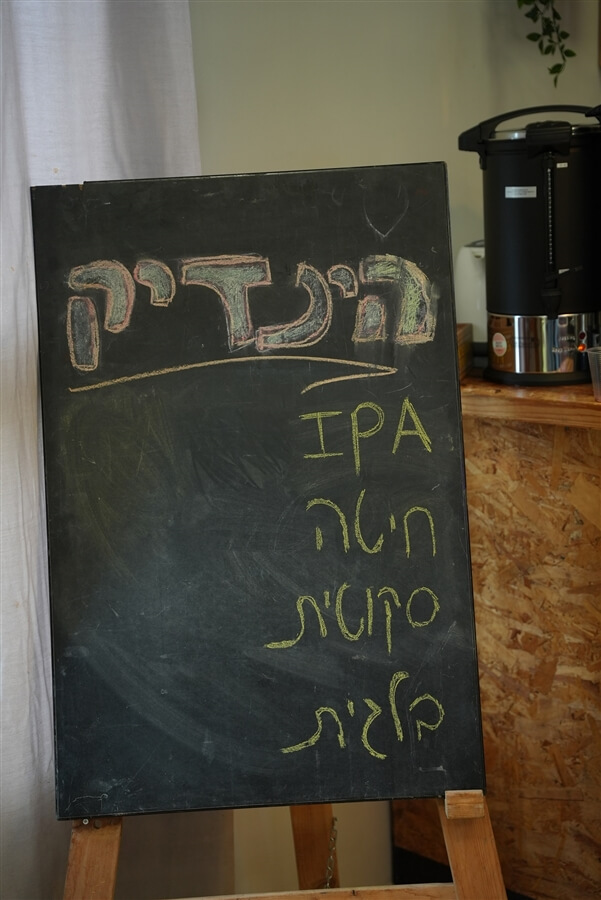 הינדיק
IPA
חיטה
סקוטית
בלגית